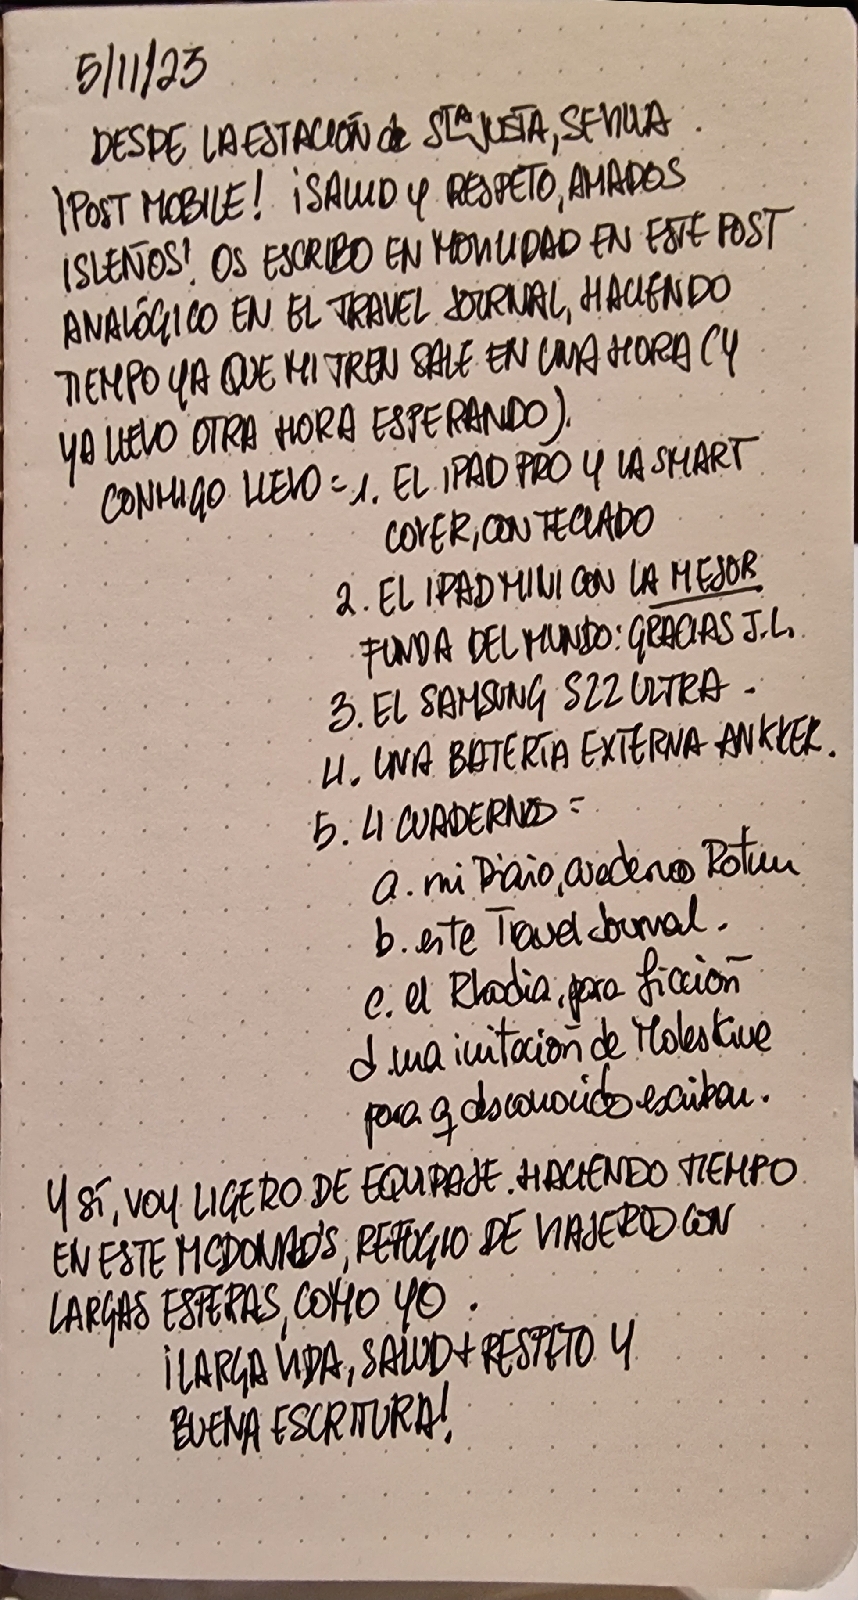 5/11/23
DESDE LA ESTACIÓN de STA JUSTA, SEVILLA.
¡POST MOBILE! ¡SALUD Y RESPETO, AMADOS
ISLEÑOS! OS ESCRIBO EN MOVILIDAD EN ESTE POST
ANALÓGICO EN EL TRAVEL JOURNAL, HACIENDO
TIEMPO YA QUE MI TREN SALE EN UNA HORA (Y
YA LLEVO OTRA HORA ESPERANDO).
CONMIGO LLEVO = 1. EL IPAD PRO Y LA SMART
COVER, CON TECLADO
2. EL IPAD MINI CON LA MEJOR
FUNDA DEL MUNDO: GRACIAS J.L.
3. EL SAMSUNG S22 ULTRA.
4. UNA BATERÍA EXTERNA ANKKER.
5. 4 CUADERNOS =
a. mi Diario, cuaderno
b. este Travel Journal.
c. el Rhodia, para ficción
d. una imitación de Moleskine
para q desconocidos escriban.
Y SÍ, VOY LIGERO DE EQUIPAJE. HACIENDO TIEMPO
EN ESTE MCDONALD'S, REFUGIO DE VIAJEROS CON
LARGAS ESPERAS, COMO YO.
¡LARGA VIDA, SALUD + RESPETO Y
BUENA ESCRITURA!